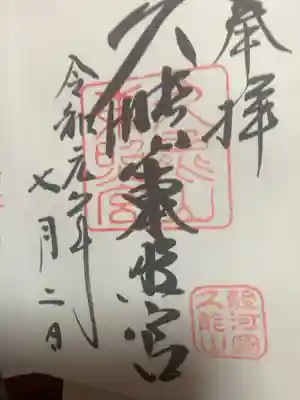 奉拝
久能山東照宮
令和元年七月二日
駿河國
久能山